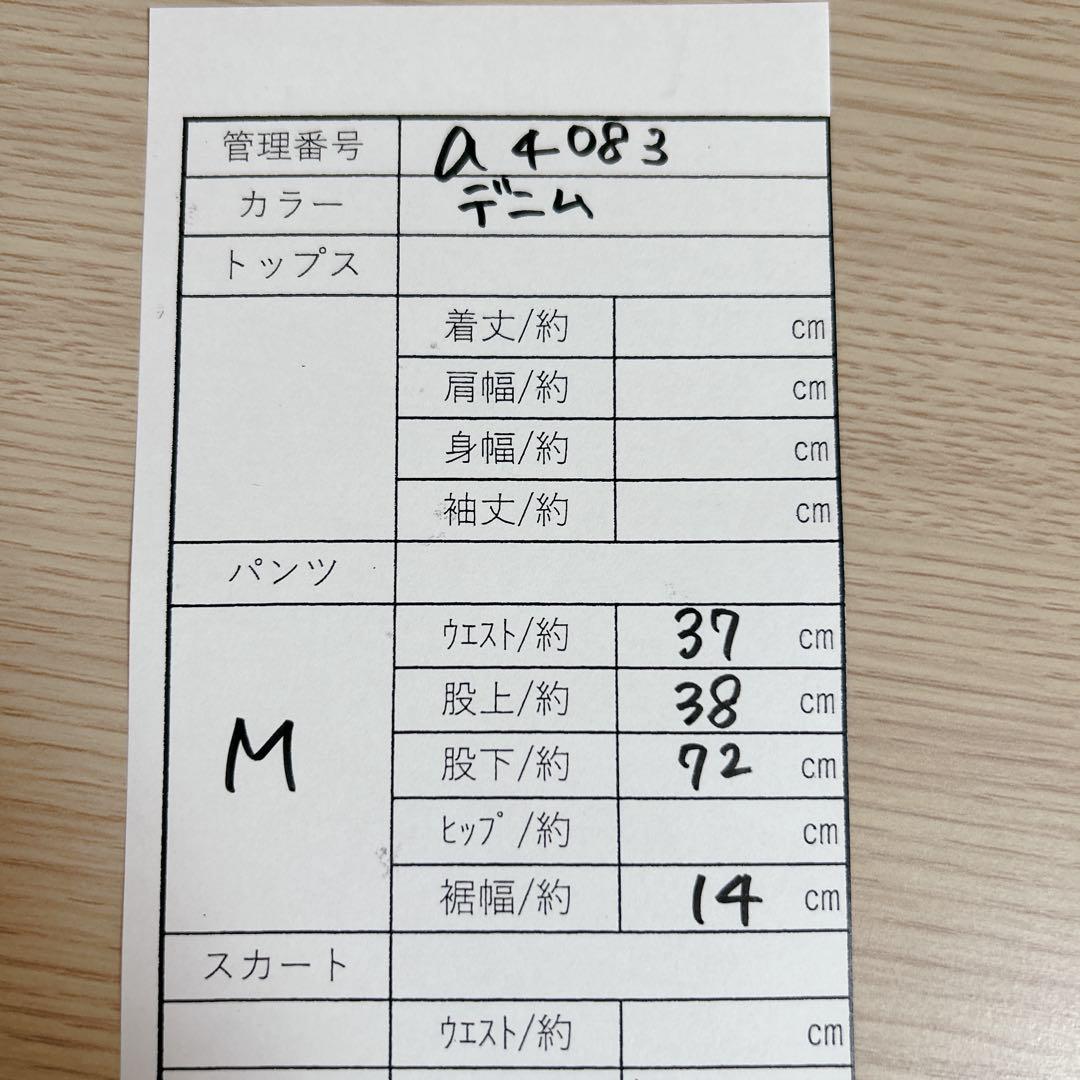 管理番号 a4083
カラー デニム
トップス
着丈/約 cm
肩幅/約 cm
身幅/約 cm
袖丈/約 cm
パンツ
M
ｳｴｽﾄ/約 37 cm
股上/約 38 cm
股下/約 72 cm
ﾋｯﾌﾟ/約 cm
裾幅/約 14 cm
スカート
ｳｴｽﾄ/約 cm